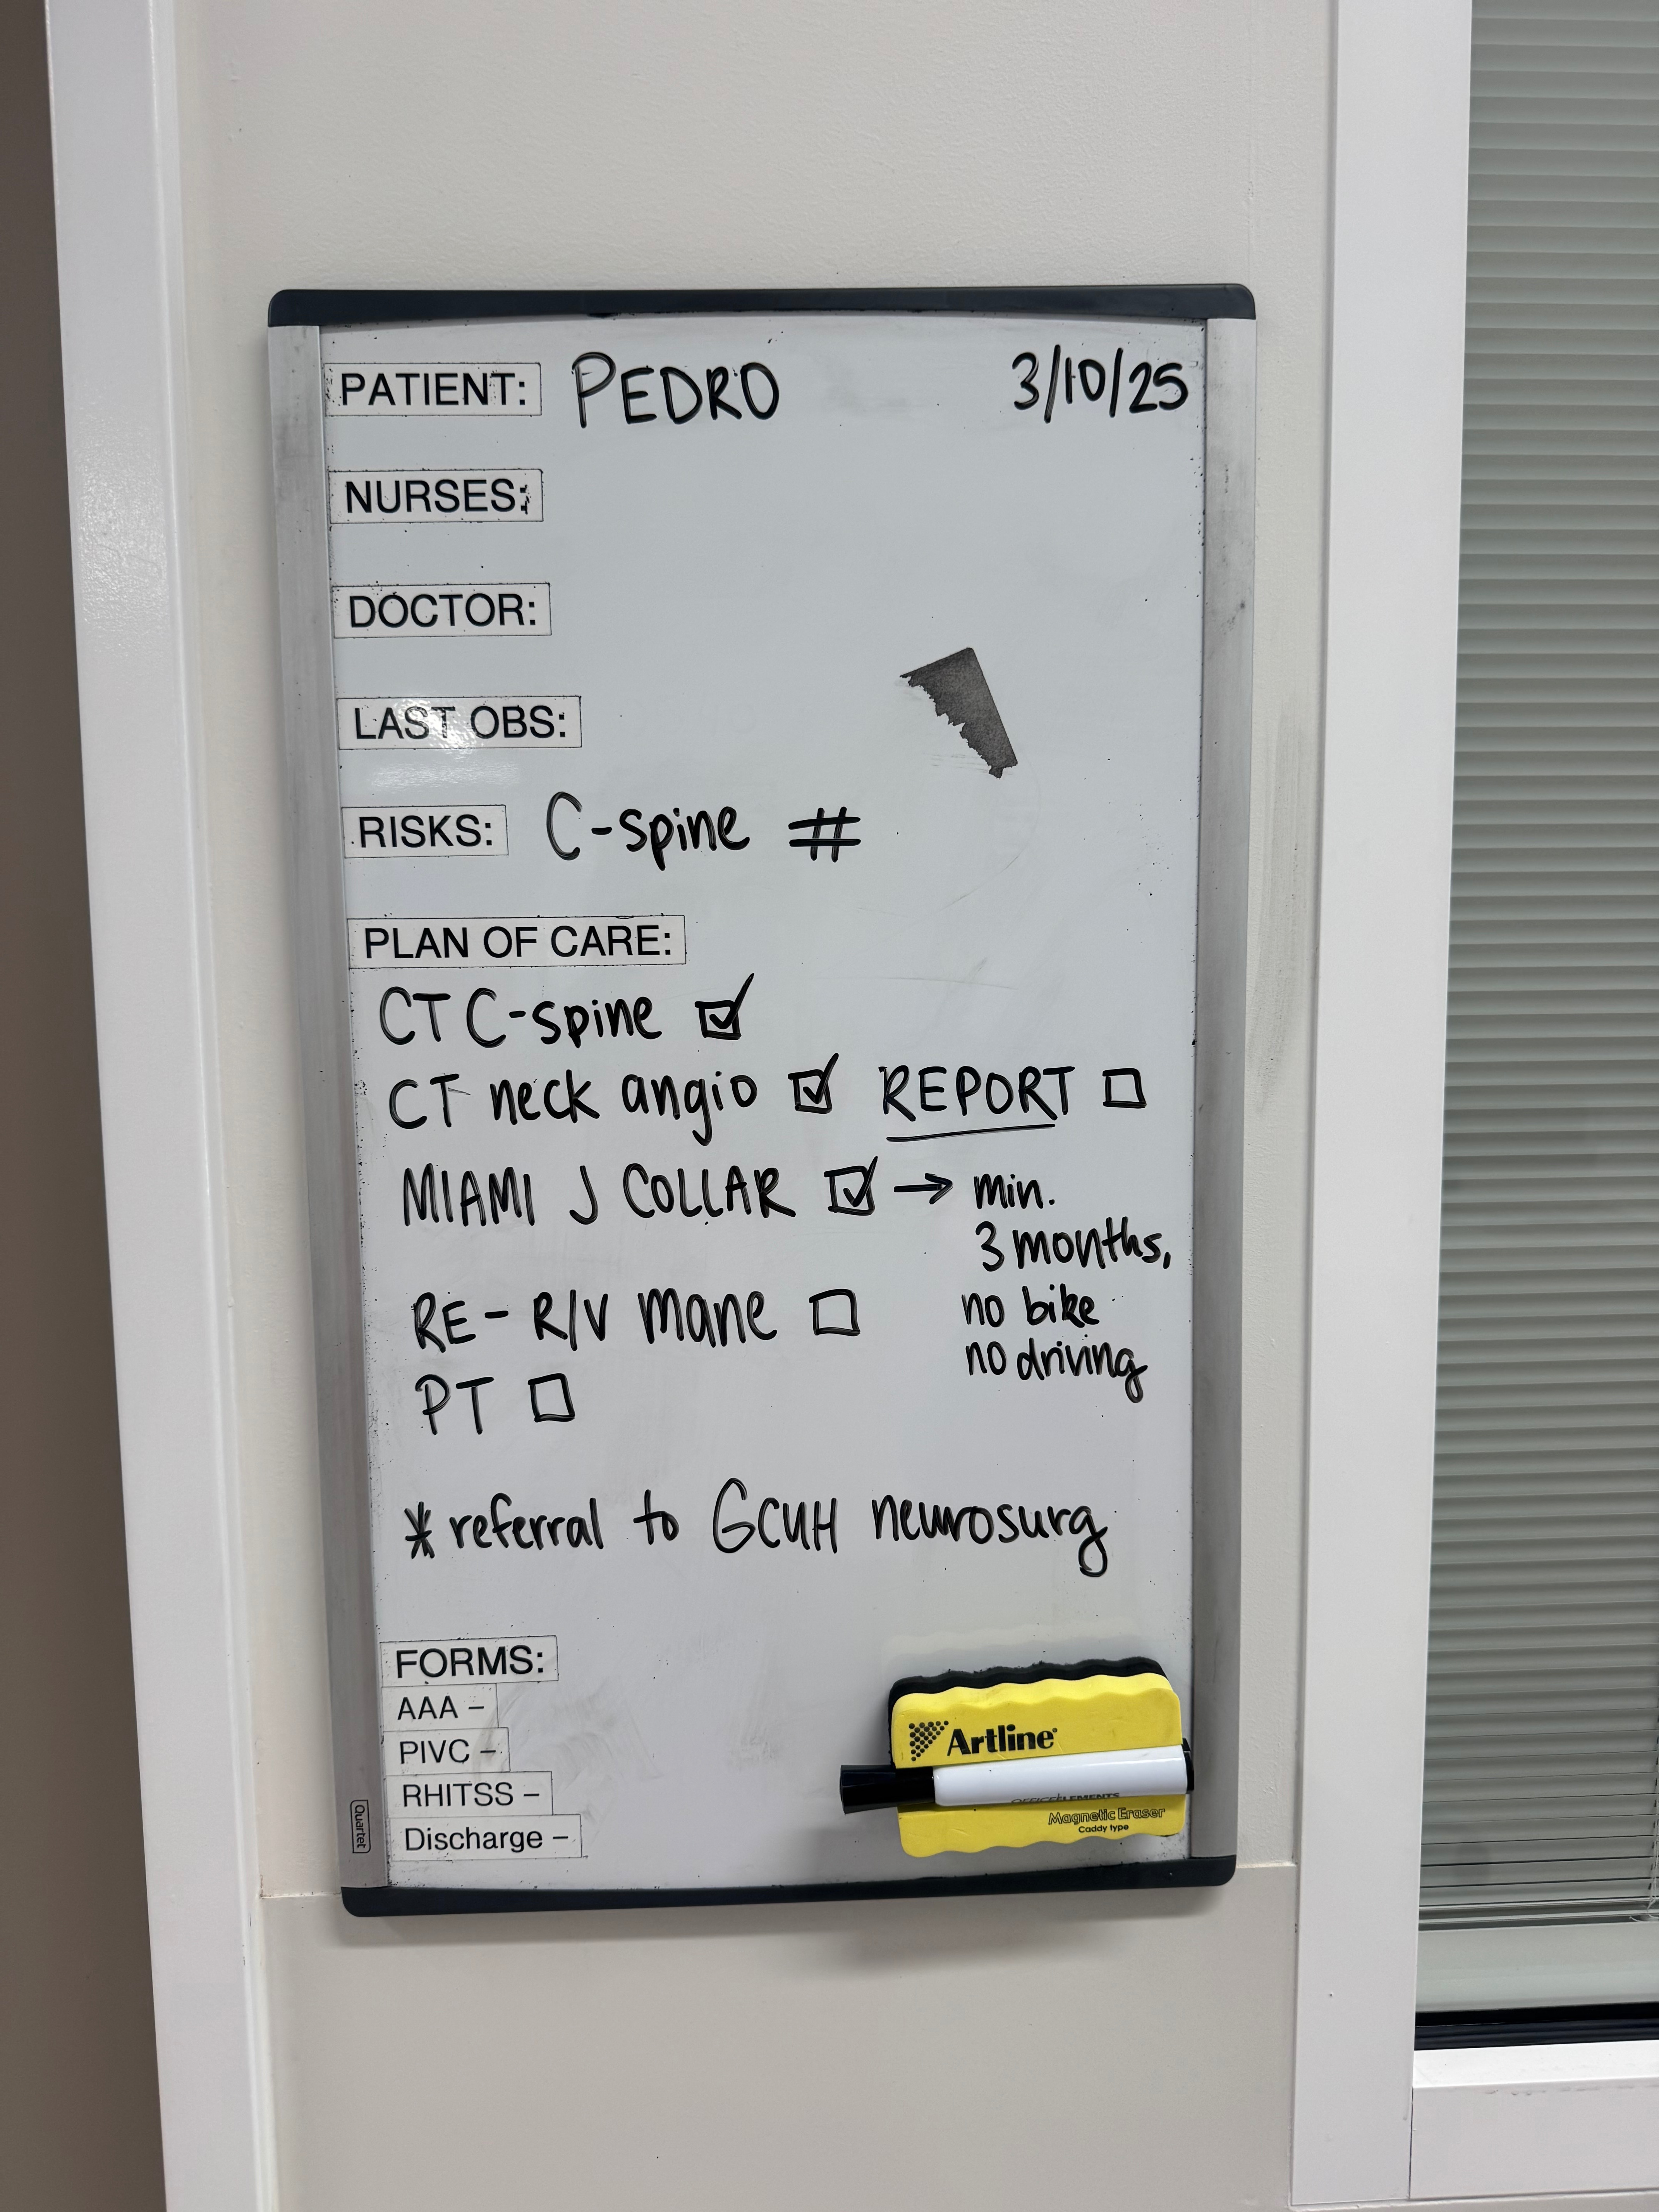 PATIENT: PEDRO 3/10/25
NURSES:
DOCTOR:
LAST OBS:
RISKS: C-spine #
PLAN OF CARE:
CT C-spine ☑
CT neck angio ☑ REPORT ☐
MIAMI J COLLAR ☑ → min.
3 months,
RE-R/V mane ☐ no bike
no driving
PT ☐
* referral to GCUH neurosurg
FORMS:
AAA –
PIVC –
RHITSS –
Discharge –
Quartet
Artline
OFFICE ELEMENTS
Magnetic Eraser
Caddy type